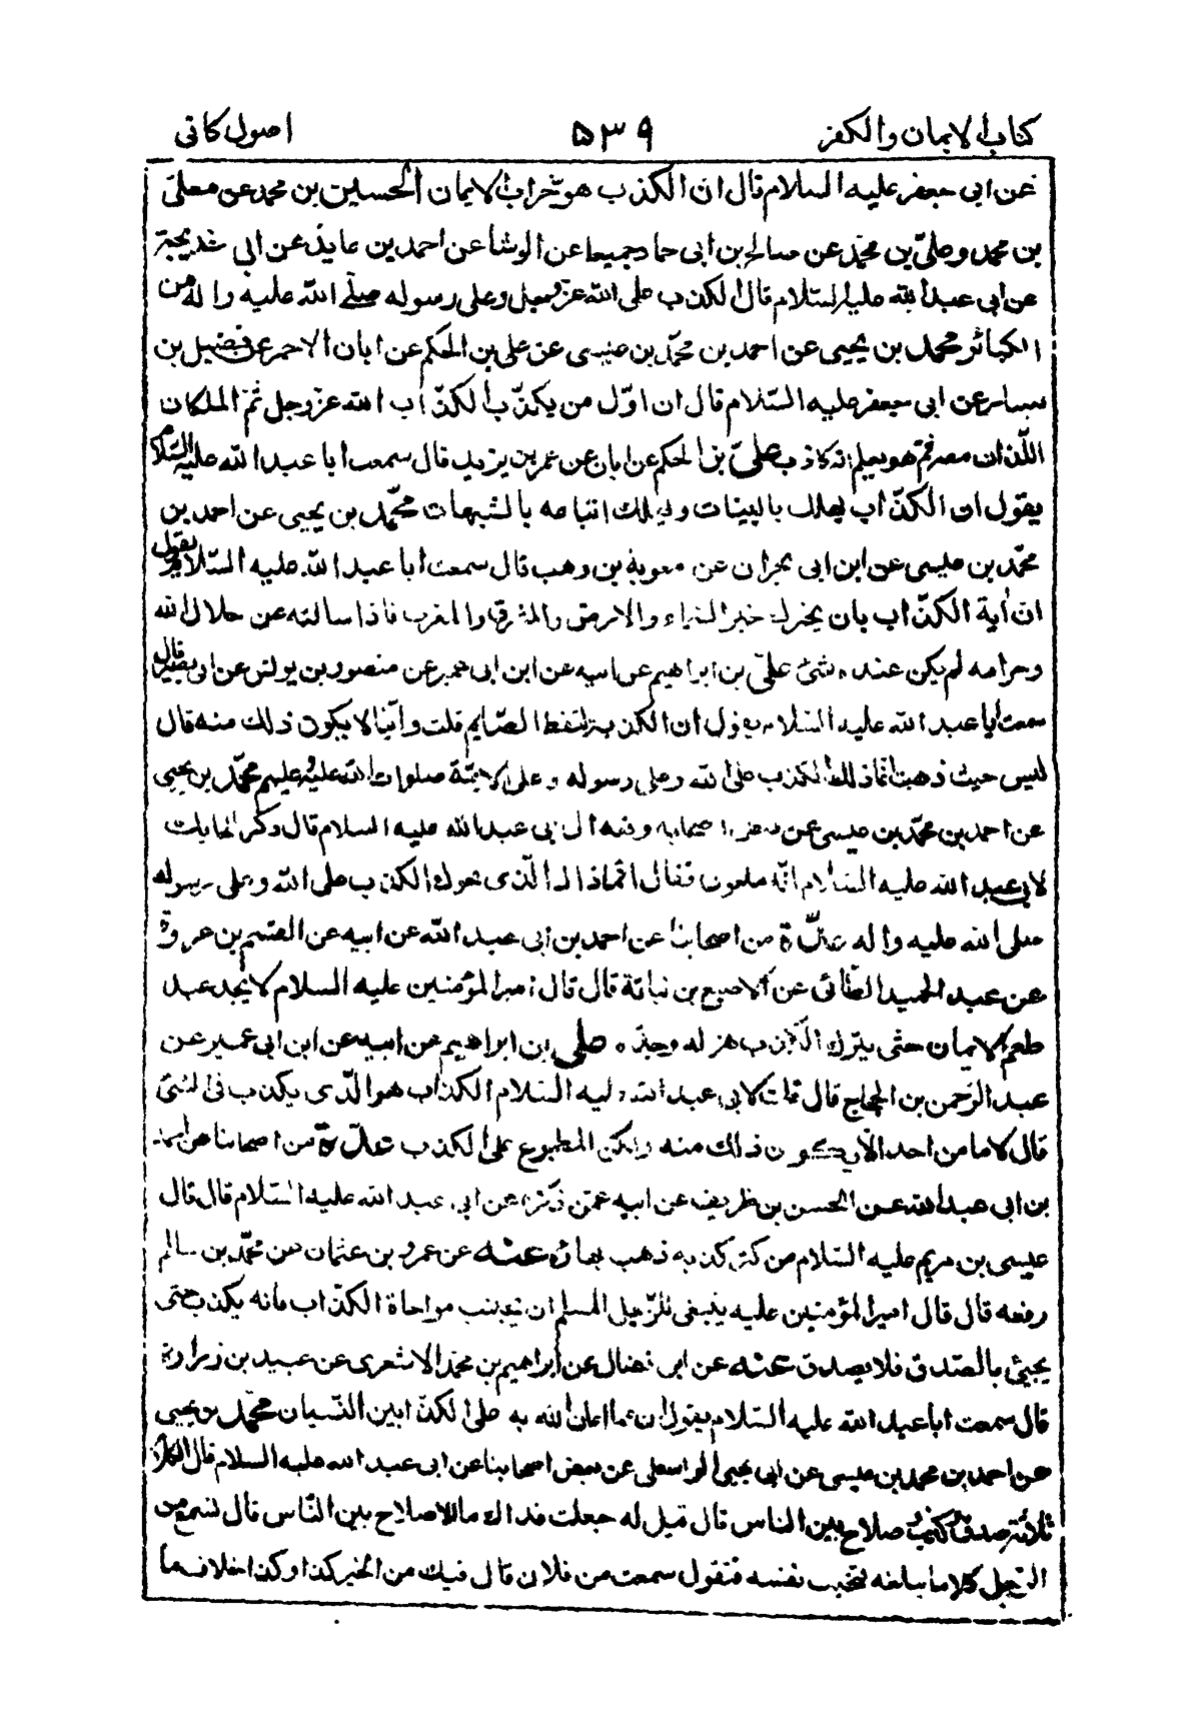 كتاب الايمان والكفر ٥٣٩ اصول كافى
عن ابى جعفر عليه السلام قال ان الكذب هو خراب الايمان الحسين بن محمد عن معلى
بن محمد وعلىّ بن محمّد عن صالح بن ابى حماد جميعا عن الوشا عن احمد بن عايذ عن ابى خديجة
عن ابى عبد الله عليه السّلام قال الكذب على الله عزوجل وعلى رسوله صلى الله عليه واله من
الكبائر محمد بن يحيى عن احمد بن محمّد بن عيسى عن على بن الحكم عن ابان الاحمر عن فضيل بن
يسار عن ابى جعفر عليه السّلام قال ان اوّل من يكذّب الكذّاب الله عزوجل ثمّ الملكان
اللّذان معه ثم هو يعلم انه كاذب علىّ بن الحكم عن ابان عن عمر بن يزيد قال سمعت ابا عبد الله عليه السّلام
يقول ان الكذّاب يهلك بالبينات ويهلك اتباعه بالشبهات محمّد بن يحيى عن احمد بن
محمّد بن عيسى عن ابن ابى نجران عن معوية بن وهب قال سمعت ابا عبد الله عليه السّلام يقول
ان اٰية الكذّاب بان يخبرك خبر السّماء والارض والمشرق والمغرب فاذا سالته عن حلال الله
وحرامه لم يكن عنده شئ علىّ بن ابراهيم عن ابيه عن ابن ابى عمير عن منصور بن يونس عن ابى بصير قال
سمعت ابا عبد الله عليه السّلام يقول ان الكذبة لتفطّر الصّايم قلت وايّنا لا يكون ذلك منه قال
ليس حيث ذهبت انّما ذلك الكذب على الله وعلى رسوله وعلى الائمّة صلوات الله عليه وعليهم محمّد بن يحيى
عن احمد بن محمّد بن عيسى عن بعض اصحابه رفعه الى ابى عبد الله عليه السلام قال ذكر الحايك
لابى عبد الله عليه السّلام انّه ملعون فقال انّما ذاك الّذى يحوك الكذب على الله وعلى رسوله
صلى الله عليه واله عدّة من اصحابنا عن احمد بن ابى عبد الله عن ابيه عن القسم بن عروة
عن عبد الحميد الطّائى عن الاصبغ بن نباتة قال قال امير المؤمنين عليه السلام لا يجد عبد
طعم الايمان حتّى يترك الكذب هزله وجدّه على بن ابراهيم عن ابيه عن ابن ابى عمير عن
عبد الرّحمن بن الحجاج قال قلت لابى عبد الله عليه السّلام الكذّاب هو الّذى يكذب فى الشئ
قال لا ما من احد الّا يكون ذلك منه ولكن المطبوع على الكذب عدّة من اصحابنا عن احمد
بن ابى عبد الله عن الحسن بن ظريف عن ابيه عمّن ذكره عن ابى عبد الله عليه السّلام قال قال
عيسى بن مريم عليه السّلام من كثر كذبه ذهب بهاؤه عنه عن عمرو بن عثمان عن محمّد بن سالم
رفعه قال قال امير المؤمنين عليه ينبغى للرّجل المسلم ان يجتنب مواخاة الكذّاب فانه يكذب حتى
يجيئ بالصّدق فلا يصدق عنه عن ابن فضال عن ابراهيم بن محمّد الاشعرى عن عبيد بن زرارة
قال سمعت ابا عبد الله عليه السّلام يقول ان مما اعان الله به على الكذّابين النّسيان محمّد بن يحيى
عن احمد بن محمد بن عيسى عن ابى يحيى الواسطى عن بعض اصحابنا عن ابى عبد الله عليه السلام قال الكلام
ثلاثة صدق وكذب واصلاح بين الناس قال قيل له جعلت فداك ما الاصلاح بين النّاس قال تسمع من
الرّجل كلاما يبلغه فتخبث نفسه فتقول سمعت من فلان قال فيك من الخير كذا وكذا خلاف ما